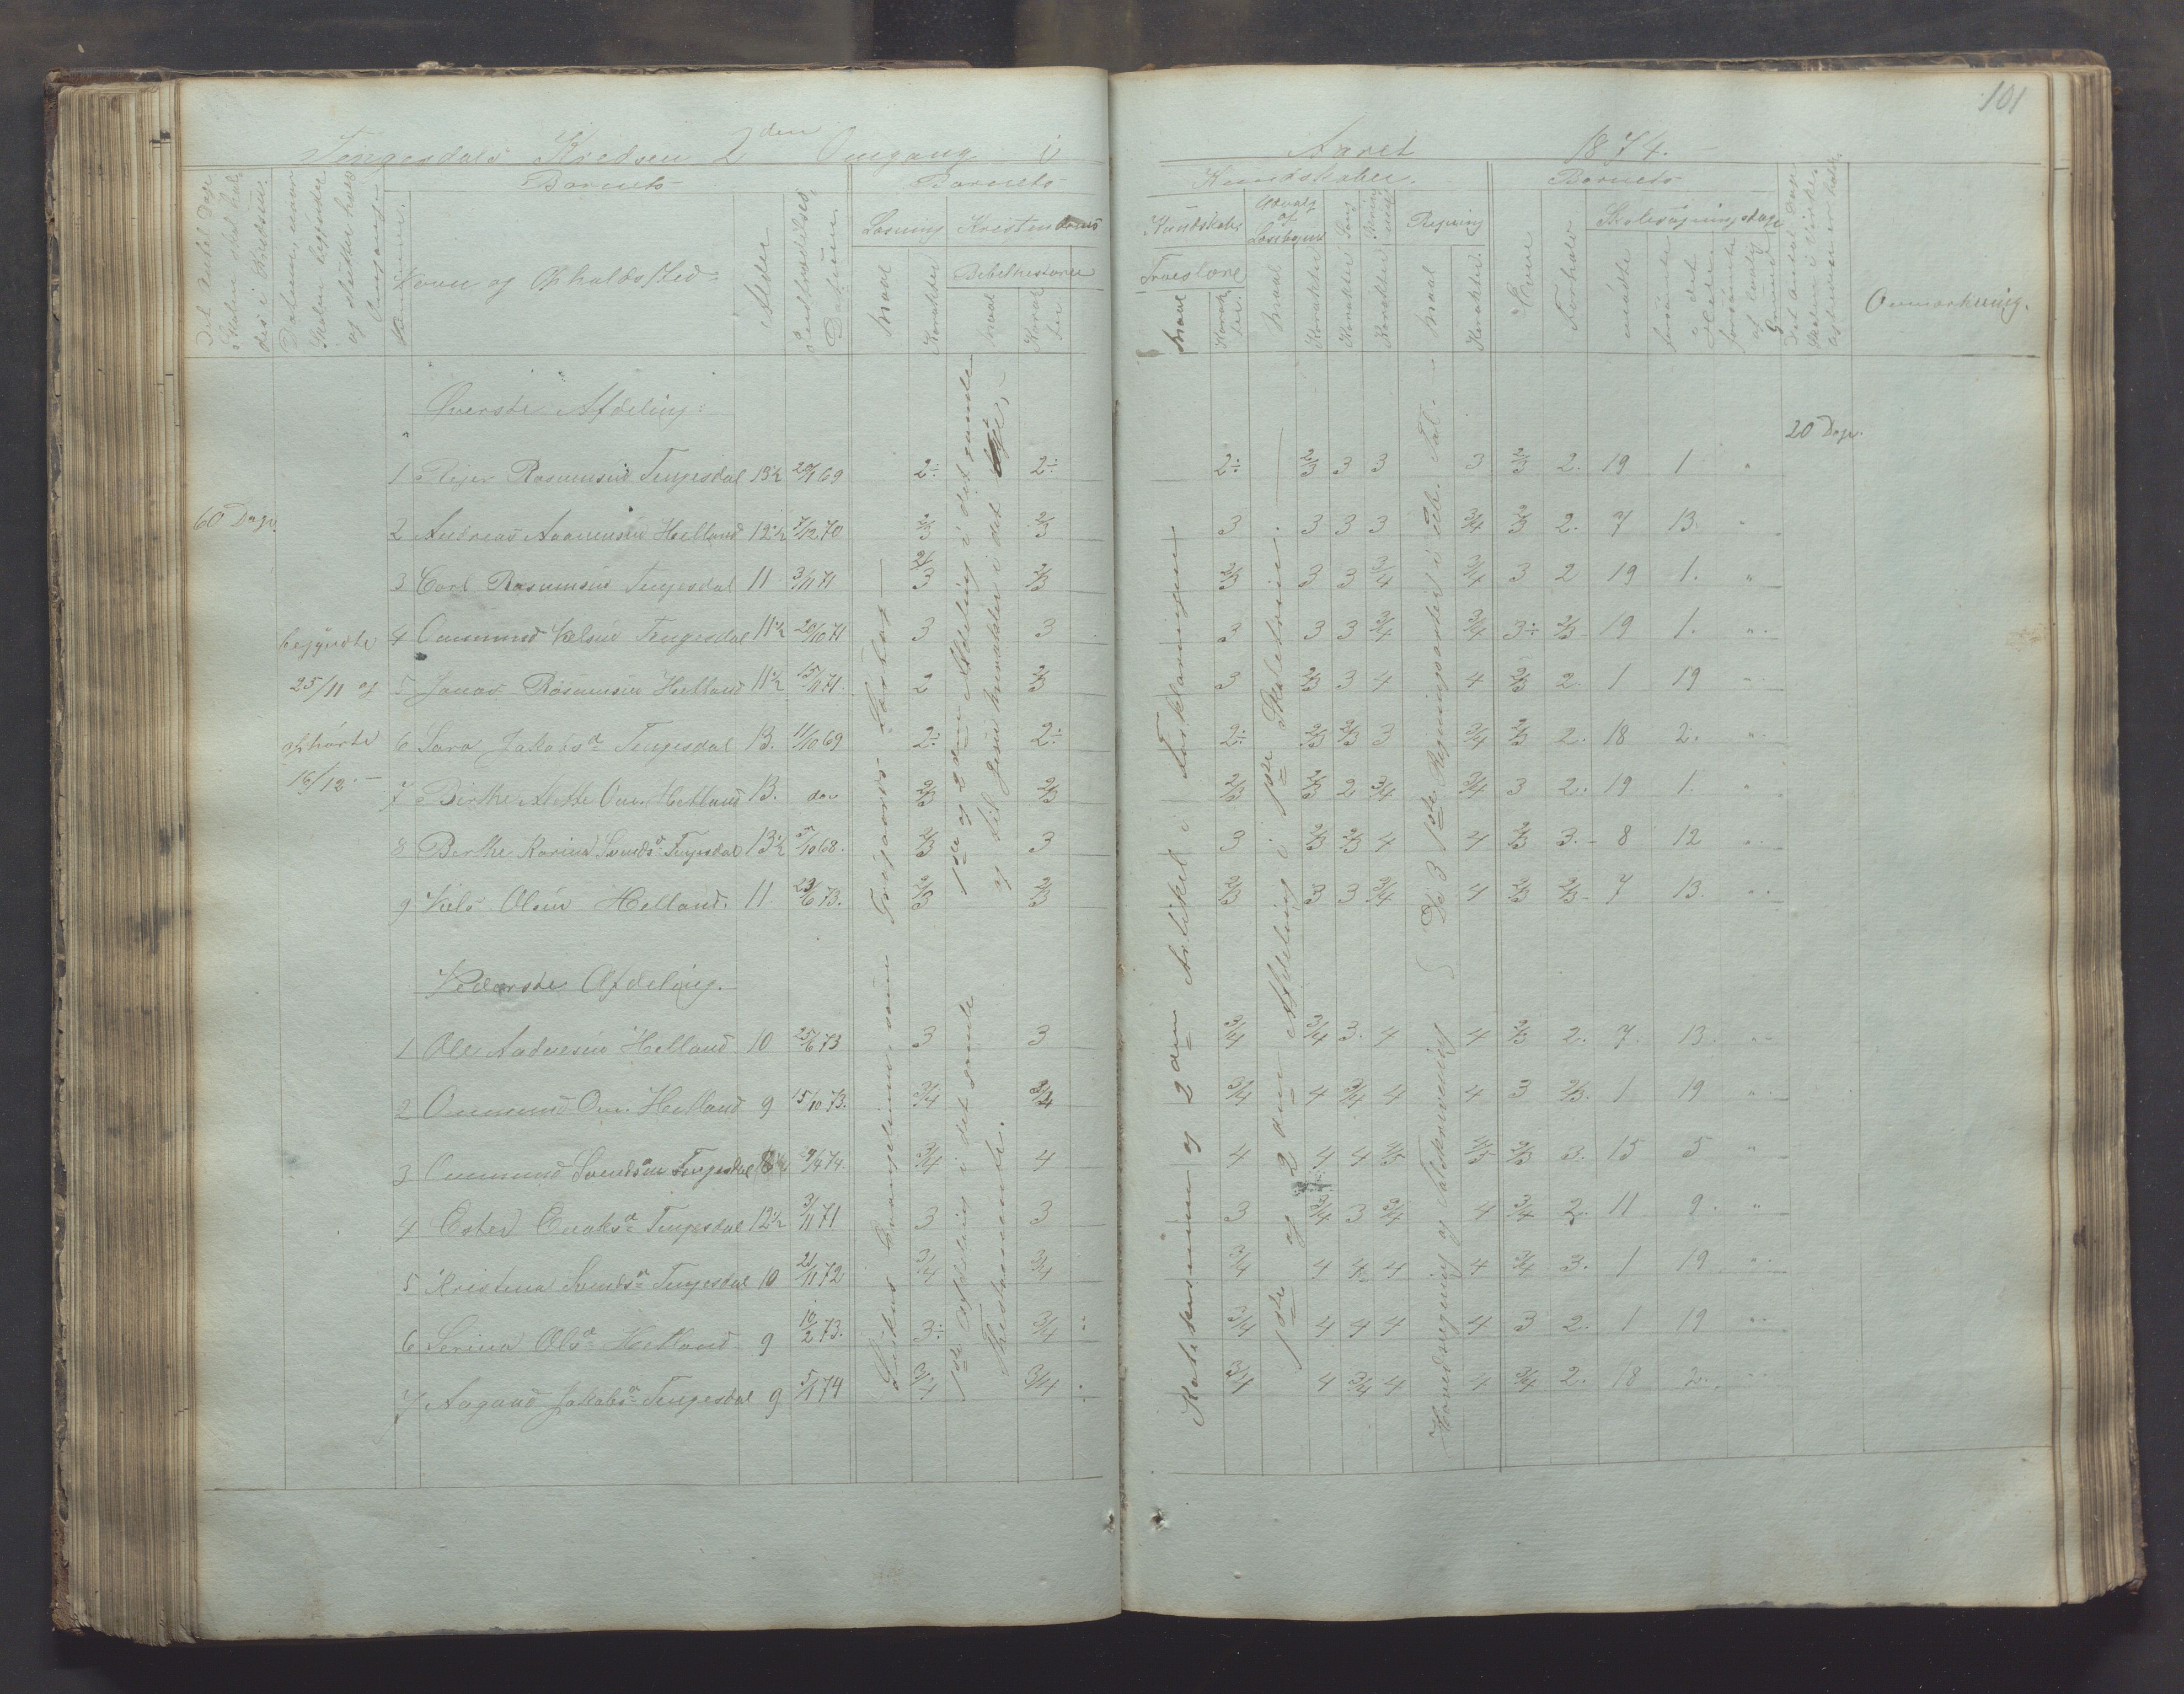 101
Tengesdals Kredsen 2den Omgang i Aaret 1874.
Barnets Barnets Kundskaber. Barnets
Det Antal Dage Skolen skal holdes i Kredsen.
Datum, naar Skolen begynder og slutter hver Omgang
Nummer.
Navn og Opholdssted
Alder
Indtrædelses Datum.
Læsning Kristendoms Kundskaber Udvalg af Læsebogen Sang Skrivning Regning
Maal Karakter Bibelhistorie Troeslære
Maal Karakter Maal Karakter Maal Karakter Karakter Karakter Maal Karakter
Evne Forhold Skolesøgningsdage
mødte forsømte i det Hele forsømte af lovlig Grund
Det Antal Dage Skolen i Virkeligheden er holdt
Anmærkning.
Øverste Afdeling:
20 Dage.
60 Dage.
1 Rasmussen Tengesdal 13½ 69 2÷ 2÷ 2÷ 2/3 3 3 3 2/3 2. 19 1 "
2 Andreas Aanensen Helland 12½ 5/12 70 2/3 2/3 3 3 3 3 3/4 2/3 2. 7 13. "
3 Carl Rasmussen Tengesdal 11 3/11 71 2/3 2/3 2/3 3 3 3/4 3/4 3 2 19 1. "
4 Ommund Nelsen Tengesdal 11½ 20/10 71 3 3 3 3 3 3/4 3/4 3÷ 2/3 19 1. "
5 Jonas Rasmussen Helland 11½ 15/11 71. 2 2/3 3 2/3 3 4 4 2/3 2. 1 19 "
6 Sara Jakobsd Tengesdal 13. 11/10 69 2÷ 2÷ 2÷ 2/3 2/3 3 3/4 2/3 2. 18 2. "
7 Birthe Mette Om. Helland 13. do 2/3 2/3 2/3 2/3 2 3/4 3/4 3 2. 19 1. "
8 Berthe Karina Svendsd Tengesdal 13½ 5/10 68. 2/3 3 3 2/3 2/3 4 4 2/3 3. 8 12 "
9 Nels Olsen Helland. 11. 23/6 73. 2/3 2/3 2/3 3 3 3/4 4 2/3 2/3 7 13. "
begyndte
25/11 og
ophørte
16/12.
Nederste Afdeling.
1 Ole Andresen Helland 10 25/6 73 3 3 3/4 3/4 3. 4 4 2/3 2. 7. 13. "
2 Ommund Om. Helland 9 15/10 73. 3/4 3/4 3/4 4 3/4 4 4 3 2/3. 1 19 "
3 Ommund Svendsen Tengesdal 9/4 74. 3/4 4 4 4 4 4/5 4/5 2/3 3. 15 5 "
4 Ester Enoksd Tengesdal 12½ 3/11 71 3 3 3 3/4 3 3/4 4 3/4 2. 11 9. "
5 Kristina Svendsd Tengesdal 10 21/11 72 3/4 3/4 3/4 4 4 4 4 3/4 3. 1 19 "
6 Serina Olsd Helland 9 10/2 73. 3÷ 3/4 3/4 4 4 4 4 3 2. 1 19 "
7 Aagaard Jakobsd Tengesdal 9 5/1 74 3/4 3/4 3/4 4 3/4 4 4 3/4 2. 18 2. "
Lukas Evangelium som Forfaars
1ste og 2den Afdeling i det gamle
og til Jesu Mirakler i det
1ste Afdeling i det gamle
Thestamente.
Katekismen og 2den Artikel i Forklaringen
1ste og 2den Afdeling i 1ste Skoletrin.
Hovedregning og Talskrivning De 3 1ste Regningsarter i Tal.